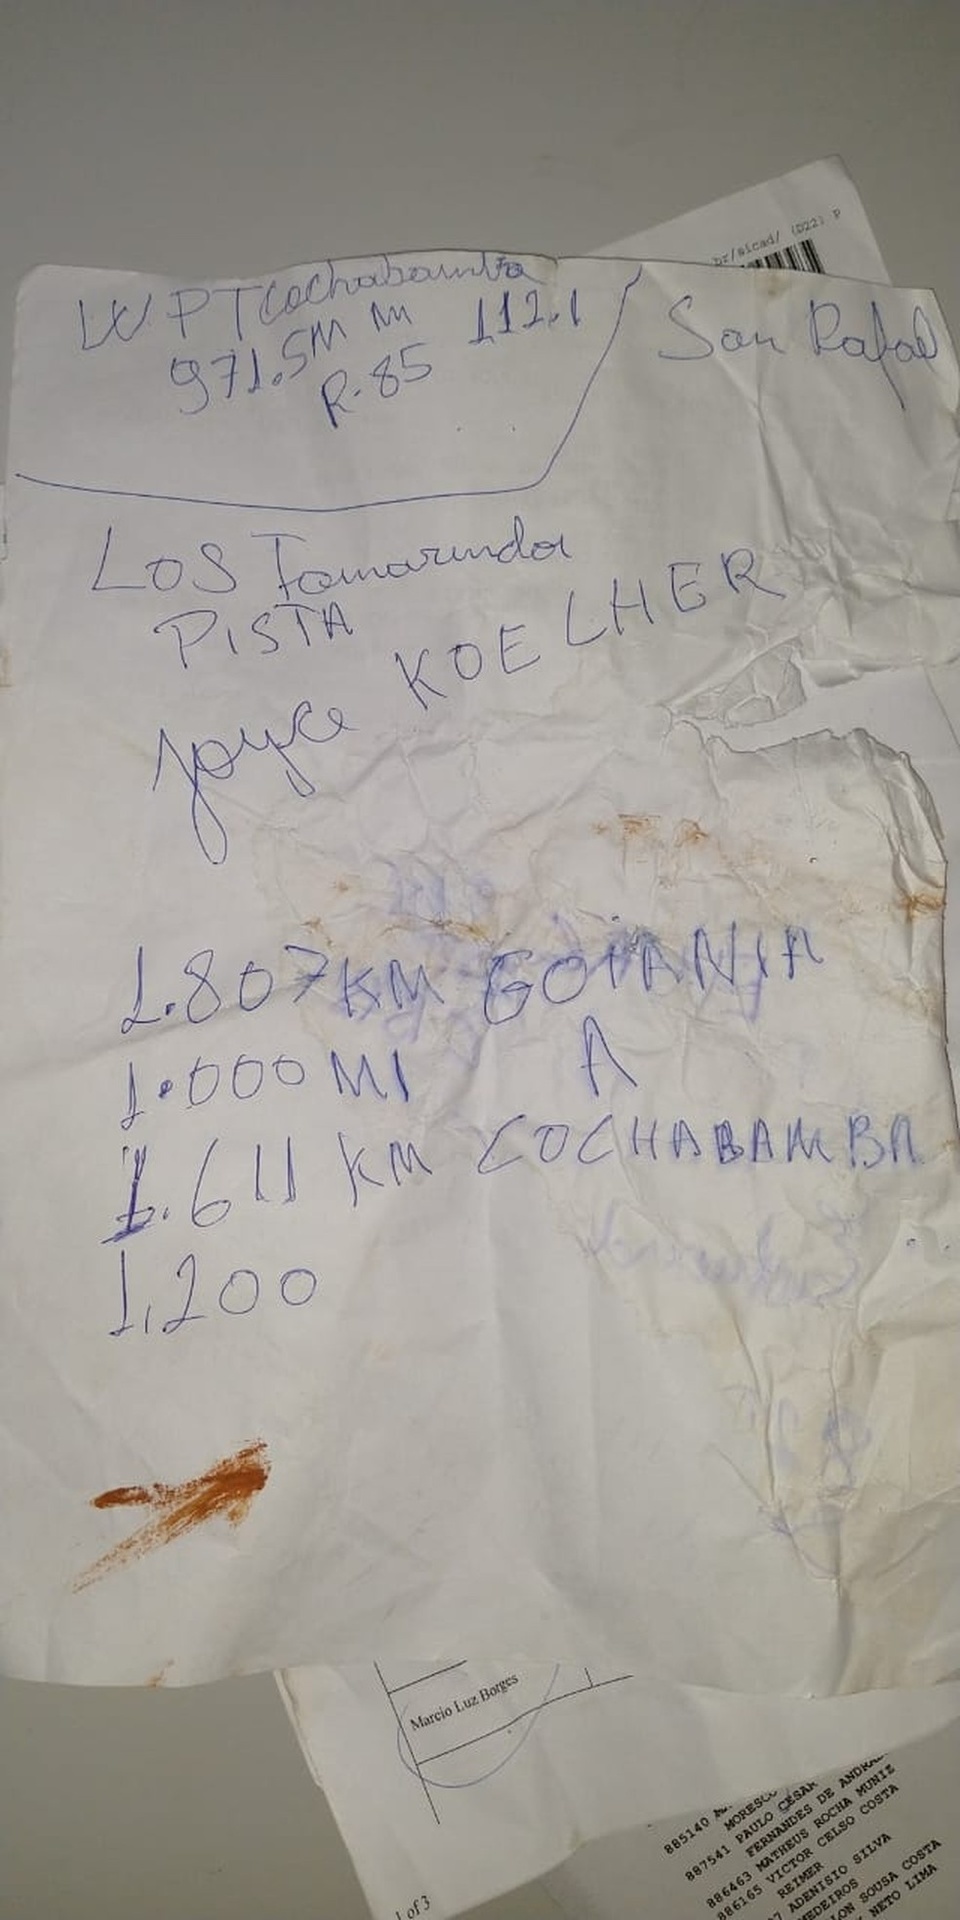 br/sicad/ (D22) P
W P T Cochabamba
971.5M NM 112.1
R-85
San Rafael
LOS Tamarindos
PISTA
Joyce KOELHER
1.807 KM GOIANIA
1.000 MI A
1.611 KM COCHABAMBA
1,200
Marcio Luz Borges
1 of 3
885140
MORESCO
887541 PAULO CESAR
FERNANDES DE
886463 MATHEUS ROCHA MUNIZ
886165 VICTOR CELSO COSTA
REIMER
ADENISIO SILVA
MEDEIROS
SOUSA COSTA
NETO LIMA